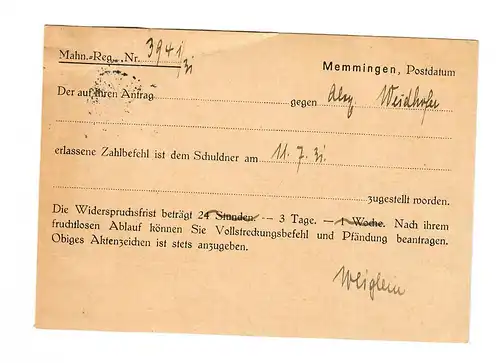 Mahn.-Reg. Nr. 3941/31
Memmingen, Postdatum
Der auf Ihren Antrag gegen Aloys Weidhofer
erlassene Zahlbefehl ist dem Schuldner am 11. 7. 31.
zugestellt worden.
Die Widerspruchsfrist beträgt 24 Stunden. — 3 Tage. — 1 Woche. Nach ihrem
fruchtlosen Ablauf können Sie Vollstreckungsbefehl und Pfändung beantragen.
Obiges Aktenzeichen ist stets anzugeben.